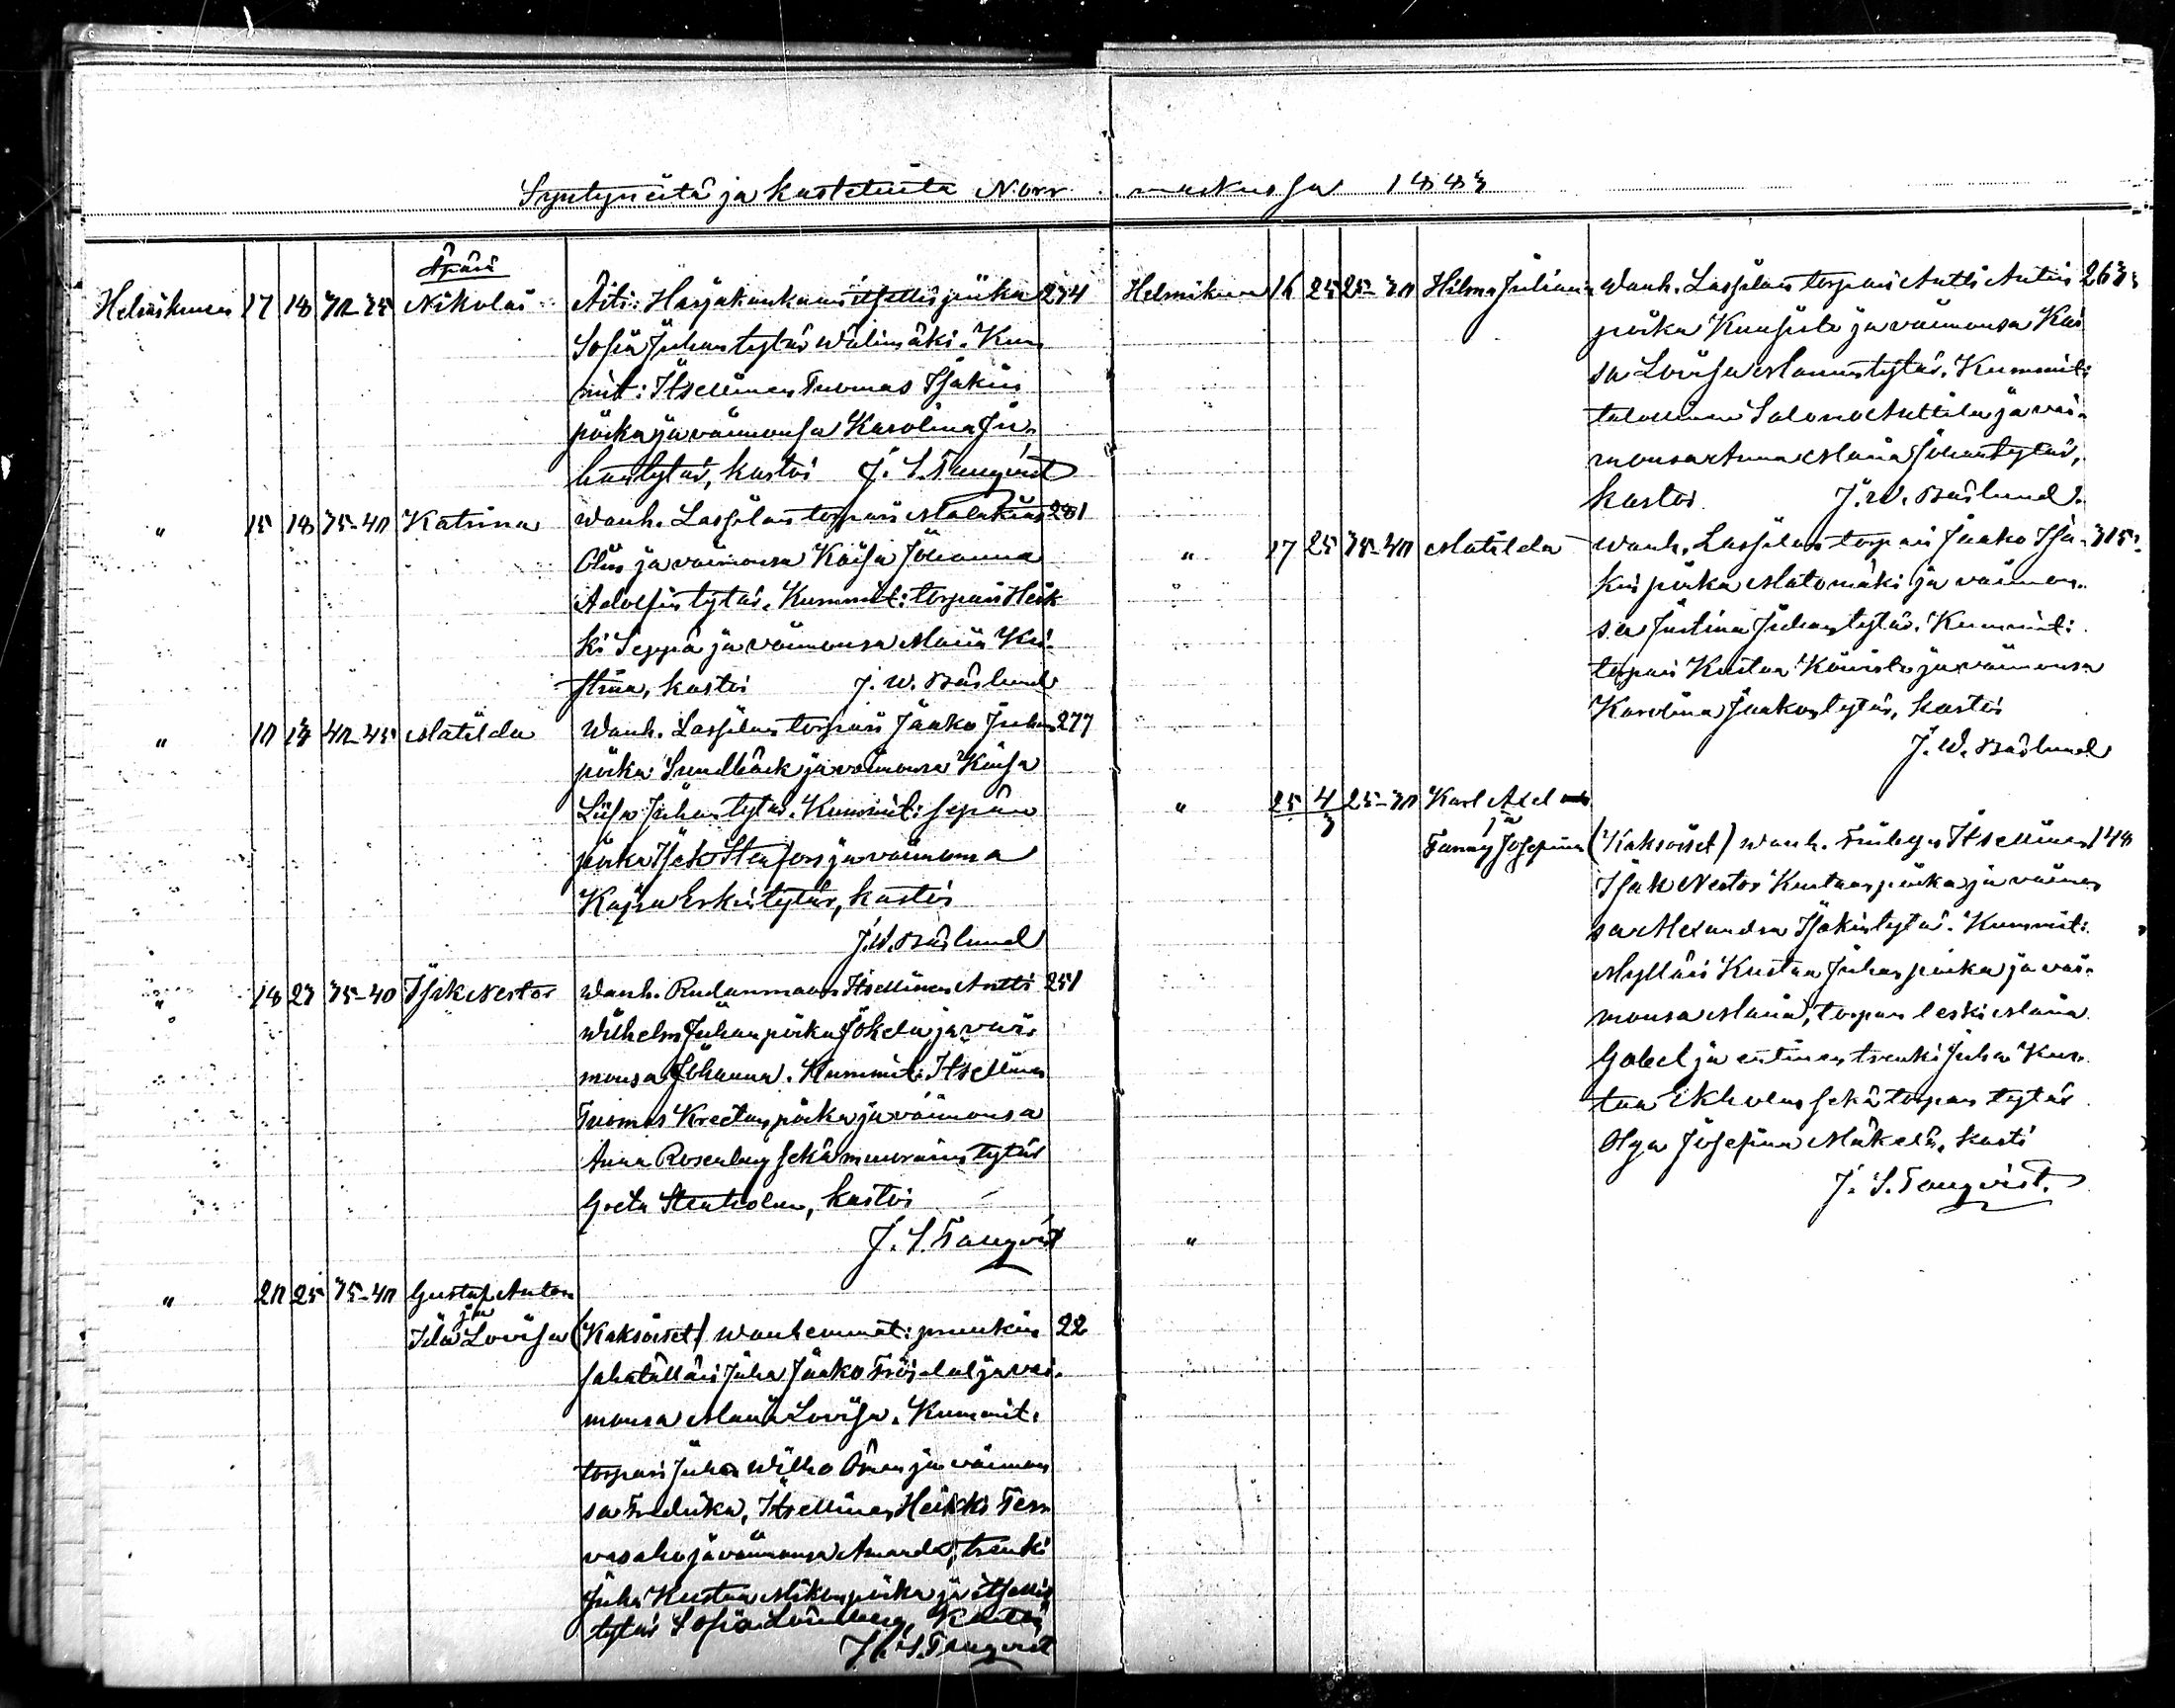 Syntyneitä ja kastetuita Norrmarkussa 1883
Äpärä
Helmikuun 17 18 30-35 Nikolai Äiti: Harjakankaan itsellis piika 234
Sofia Juhantytär Välimäki. Kum
mit: Itsellinen Tuomas Isakin
poika ja vaimonsa Karolina Ju-
hantytär, kastoi J. S. Tanqvist
" 15 18 35-40 Katrina Wanh. Lassilan torpari Malakias 281
Olin ja vaimonsa Kaisa Johanna
Adolfin tytär. Kummit: torpari Heik
ki Seppä ja vaimonsa Maria Kri-
stina, kastoi J. W. Båslund
" 10 18 40-45 Matilda Wanh. Lassilan torpari Jaako Juhan 277
poika Sundbäck ja vaimonsa Kaisa
Liisa Juhantytär. Kummit: sepän
poika Isak Stenfors ja vaimonsa
Kajsa Erkintytär, kastoi
J. W. Båslund
" 18 23 35-40 Isak Nestor Wanh. Rudanmaan Itsellinen Antti 251
Wilhelm Juhanpoika Jokela ja vai-
monsa Johanna. Kummit: Itsellinen
Tuomas Kreetanpoika ja vaimonsa
Anna Rosenberg sekä muurarin tytär
Greta Stenholm, kastoi
J. S. Tanqvist
" 20 25 35-40 Gustaf Anton
ja
Ida Lovisa (Kaksoiset) Wanhemmat: pruukin 22
sahatällari Juha Jaako Fröjdal ja vai-
monsa Maria Lovisa. Kummit:
torpari Juha Wilho Öman ja vaimon
sa Fredrika, Itsellinen Heikki Ter-
vasaho ja vaimonsa Amanda, trenki
Juha Kustaa Mikonpoika ja itsellis
tytär Sofia Lönnberg, Kastoi
J. S. Tanqvist
Helmikuun 16 25 25-30 Hilma Juliana Wanh. Lassilan torpari Antti Antin 263
poika Kuusisto ja vaimonsa Kai
sa Lovisa Mauntytär. Kummit:
talollinen Salomo Anttila ja vai-
monsa Anna Maria Johantytär,
kastoi J. W. Båslund.
" 17 25 35-40 Matilda Wanh. Lassilan torpari Jaako Isa- 315
kin poika Matomäki ja vaimon-
sa Justina Juhantytär. Kummit:
torpari Kustaa Koivisto ja vaimonsa
Karolina Jaakontytär, kastoi
J. W. Båslund
" 25 4/3 25-30 Karl Axel
ja
Fanny Josefina (Kaksoiset) Wanh. Itsellinen 148
Isak Nestor Kustaanpoika ja vaimon
sa Alexandra Isakintytär. Kummit:
Mylläri Kustaa Juhanpoika ja vai-
monsa Maria, torpan leski Maria
Gabel ja entinen trenki Juha Kus-
taa Ekholm sekä torpan tytär
Olga Josefina Mäkelä. kasti
J. S. Tanqvist.
"